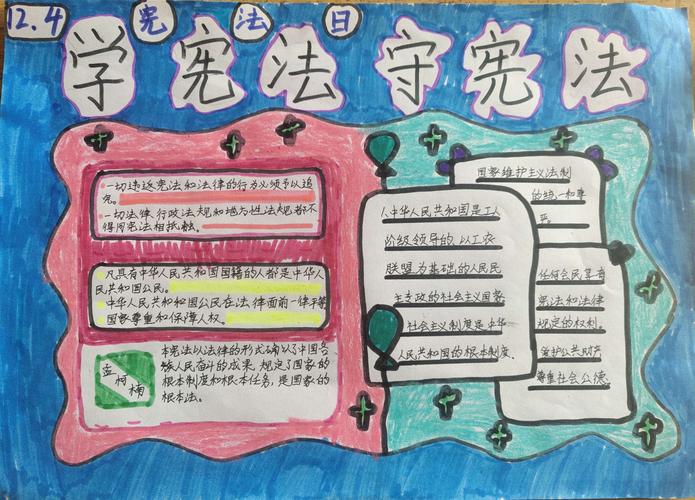 12.4 宪法日
学宪法 守宪法
一切违返宪法和法律的行为必须予以追
究。
一切法律、行政法规和地方性法规都不
得同宪法相抵触。
凡具有中华人民共和国国籍的人都是中华人
民共和国公民。
中华人民共和和国公民在法律面前一律平等
国家尊重和保障人权。
孟柯楠
本宪法以法律的形式确认了中国各
族人民奋斗的成果，规定了国家的
根本制度和根本任务，是国家的
根本法。
中华人民共和国是工人
阶级领导的，以工农
联盟为基础的人民民
主专政的社会主义国家
社会主义制度是中华
人民共和国的根本制度。
国家维护主义法制
的统一和尊
严
任何公民享有
宪法和法律
规定的权利。
爱护公共财产
尊重社会公德